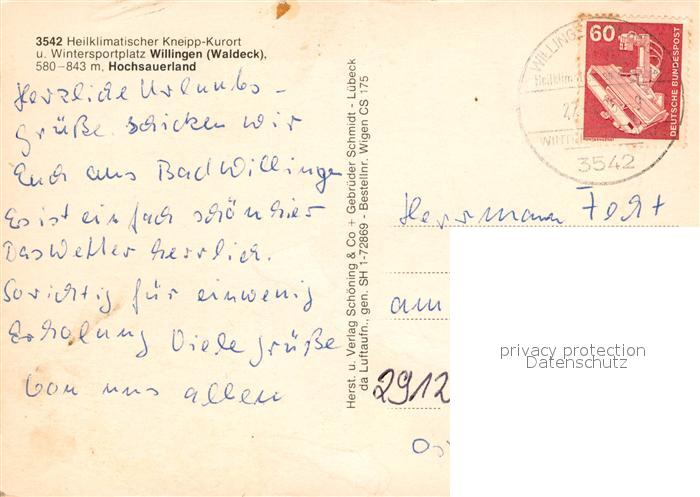 3542 Heilklimatischer Kneipp-Kurort
u. Wintersportplatz Willingen (Waldeck),
580-843 m, Hochsauerland
Herzliche Urlaubs-
grüße schicken wir
Euch aus Bad Willingen
Es ist einfach schön hier
Das Wetter herrlich.
So richtig für ein wenig
Erholung Viele grüße
von uns allen
Herst. u. Verlag Schöning & Co + Gebrüder Schmidt - Lübeck
da Luftaufn., gen. SH 1-72869 - Bestellnr. Wigen CS 175
WILLING
Heilklim.
27.
3542
60
DEUTSCHE BUNDESPOST
Herrmann
am
2912
privacy protection
Datenschutz